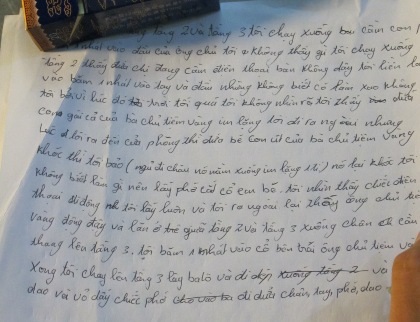 tầng 2 và tầng 3 tôi chạy xuống bar cầm con
1 nhát vào đầu của ông chủ tôi không thấy gì tôi chạy xuống
tầng 2 thấy đứa chị đang cầm điện thoại bàn không dây tôi liền lao
vào băm 1 nhát vào tay và đầu nhưng không biết có làm sao không
tôi bởi vì lúc đó trời tối quá tôi không nhìn rõ tôi thấy đứa
con gái cả của bà chủ tiệm vàng im lặng tôi đi ra ngoài nhưng
lúc đi tôi ra đến cửa phòng thì đứa bé con út của bà chủ tiệm vàng
khóc thì tôi bảo (ngủ đi cháu nó nằm xuống im lặng 1 tí) nó lại khóc tôi
không biết làm gì nên lấy phớ cắt cổ em bé. tôi nhìn thấy chiếc điện
thoại di động tôi lấy luôn và tôi ra ngoài lại thấy ông chủ tiệm
vàng động đậy và lần ở giữa tầng 2 và tầng 3 xuống chân cầu
thang lên tầng 3. tôi băm 1 nhát vào cổ bên trái ông chủ tiệm và
xong tôi chạy lên tầng 3 lấy balô và đi xuống tầng 2 và
dao với vỏ đây chiếc phớ cho vào ba đi dưới chân, tay, phớ, dao